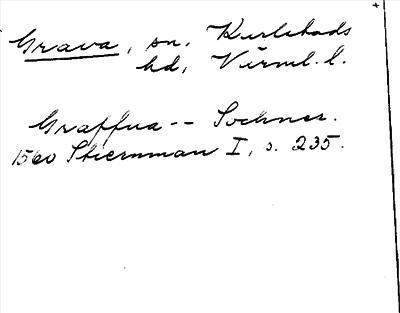 Grava, sn, Karlstads
hd, Värml. l.
Graffua -- Sochner.
1560 Stiernman I, s. 235.